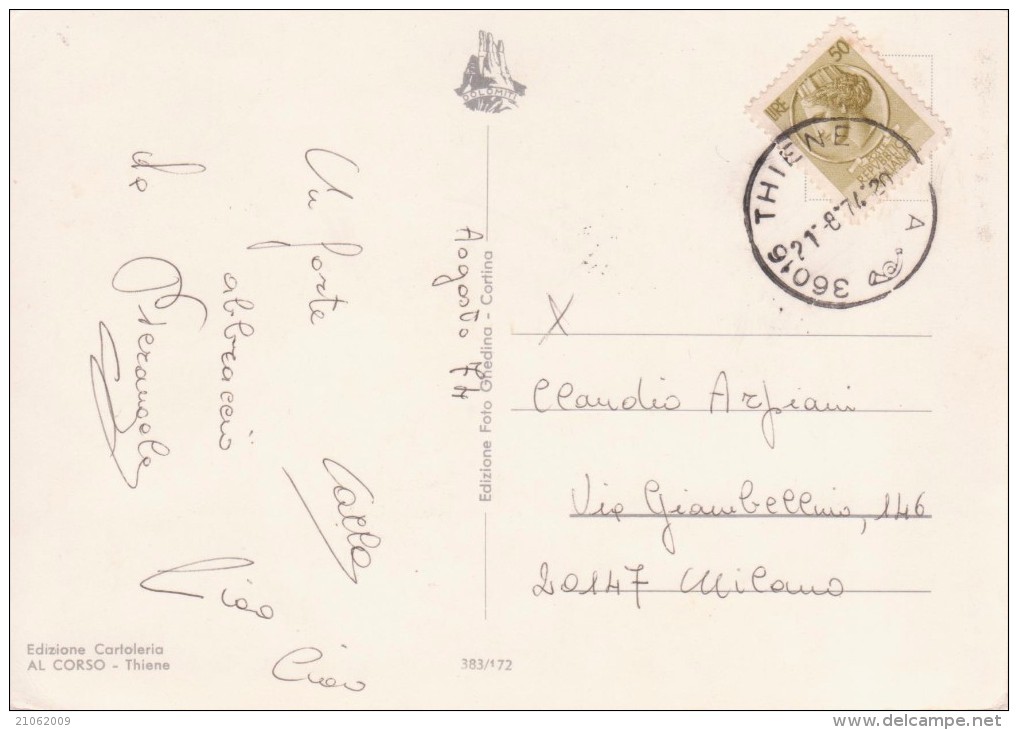 DOLOMITI
50
LIRE
REPVBBLICA
ITALIANA
36016 THIENE A
21-8-74-20
Un forte
abbraccio
da Pierangelo
Carla
Ciao
Ciao
Agosto 74
Edizione Foto Ghedina - Cortina
X
Claudio Arpiani
Via Giambellino, 146
20147 Milano
Edizione Cartoleria
AL CORSO - Thiene
383/172
21062009
delcampe.net